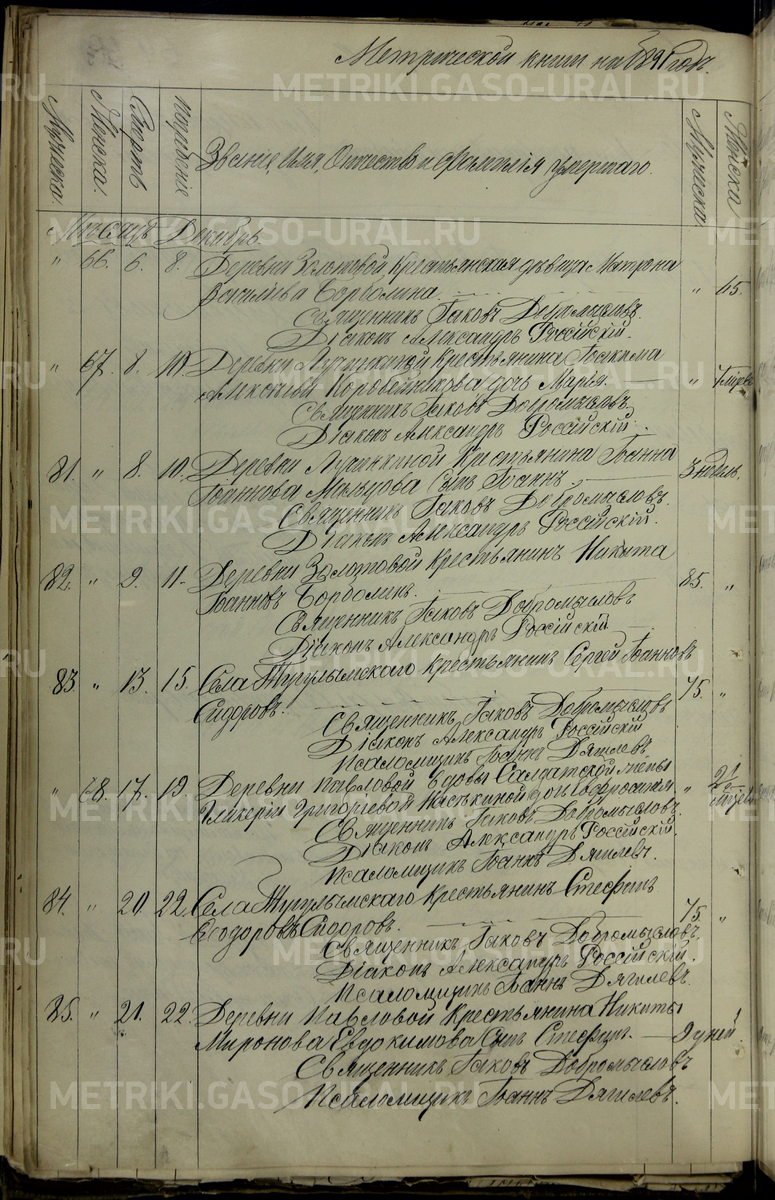 Метрической книги на 1891 годъ.
Мужска. Женска. Смерть погребенie Званiе, Имя, Отчество и фамилiя умершаго. Мужска. Женска
Мѣсяцъ Декабрь.
" 66. 6. 8. Деревни Золотовой Крестьянская дѣвица Матрона
Васильева Борболина. " 65.
Священникъ Iаковъ Добромысловъ.
Дiаконъ Александръ Россiйскiй.
" 67. 8. 10. Деревни Лучинкиной Крестьянина Iоакима
Алексѣева Коровейникова дочь Марiя. "
Священникъ Iаковъ Добромысловъ.
Дiаконъ Александръ Россiйскiй.
81. " 8. 10. Деревни Лучинкиной Крестьянина Iоанна
Iоаннова Мальцова сынъ Iоаннъ. 3 недѣль.
Священникъ Iаковъ Добромысловъ.
Дiаконъ Александръ Россiйскiй.
82. " 9. 11. Деревни Золотовой Крестьянинъ Никита
Iоанновъ Борболинъ. 85. "
Священникъ Iаковъ Добромысловъ
Дiаконъ Александръ Россiйскiй
83. " 13. 15. Села Тугулымскаго Крестьянинъ Сергiй Iоанновъ
Сидоровъ. 75. "
Священникъ Iаковъ Добромысловъ
Дiаконъ Александръ Россiйскiй
Псаломщикъ Iоаннъ Дягилевъ
" 68. 17. 19. Деревни Павловой вдовы Салдатской жены
Гликерiи Григорьевой дочь "
Священникъ Iаковъ Добромысловъ.
Дiаконъ Александръ Россiйскiй.
Псаломщикъ Iоаннъ Дягилевъ.
84. " 20. 22. Села Тугулымскаго Крестьянинъ Стефанъ
Ѳеодоровъ Сидоровъ. 75. "
Священникъ Iаковъ Добромысловъ.
Дiаконъ Александръ Россiйскiй.
Псаломщикъ Iоаннъ Дягилевъ.
85. " 21. 22. Деревни Павловой Крестьянина Никиты
Миронова Евдокимова сынъ Стефанъ. 9 дней
Священникъ Iаковъ Добромысловъ
Псаломщикъ Iоаннъ Дягилевъ.
METRIKI.GASO-URAL.RU